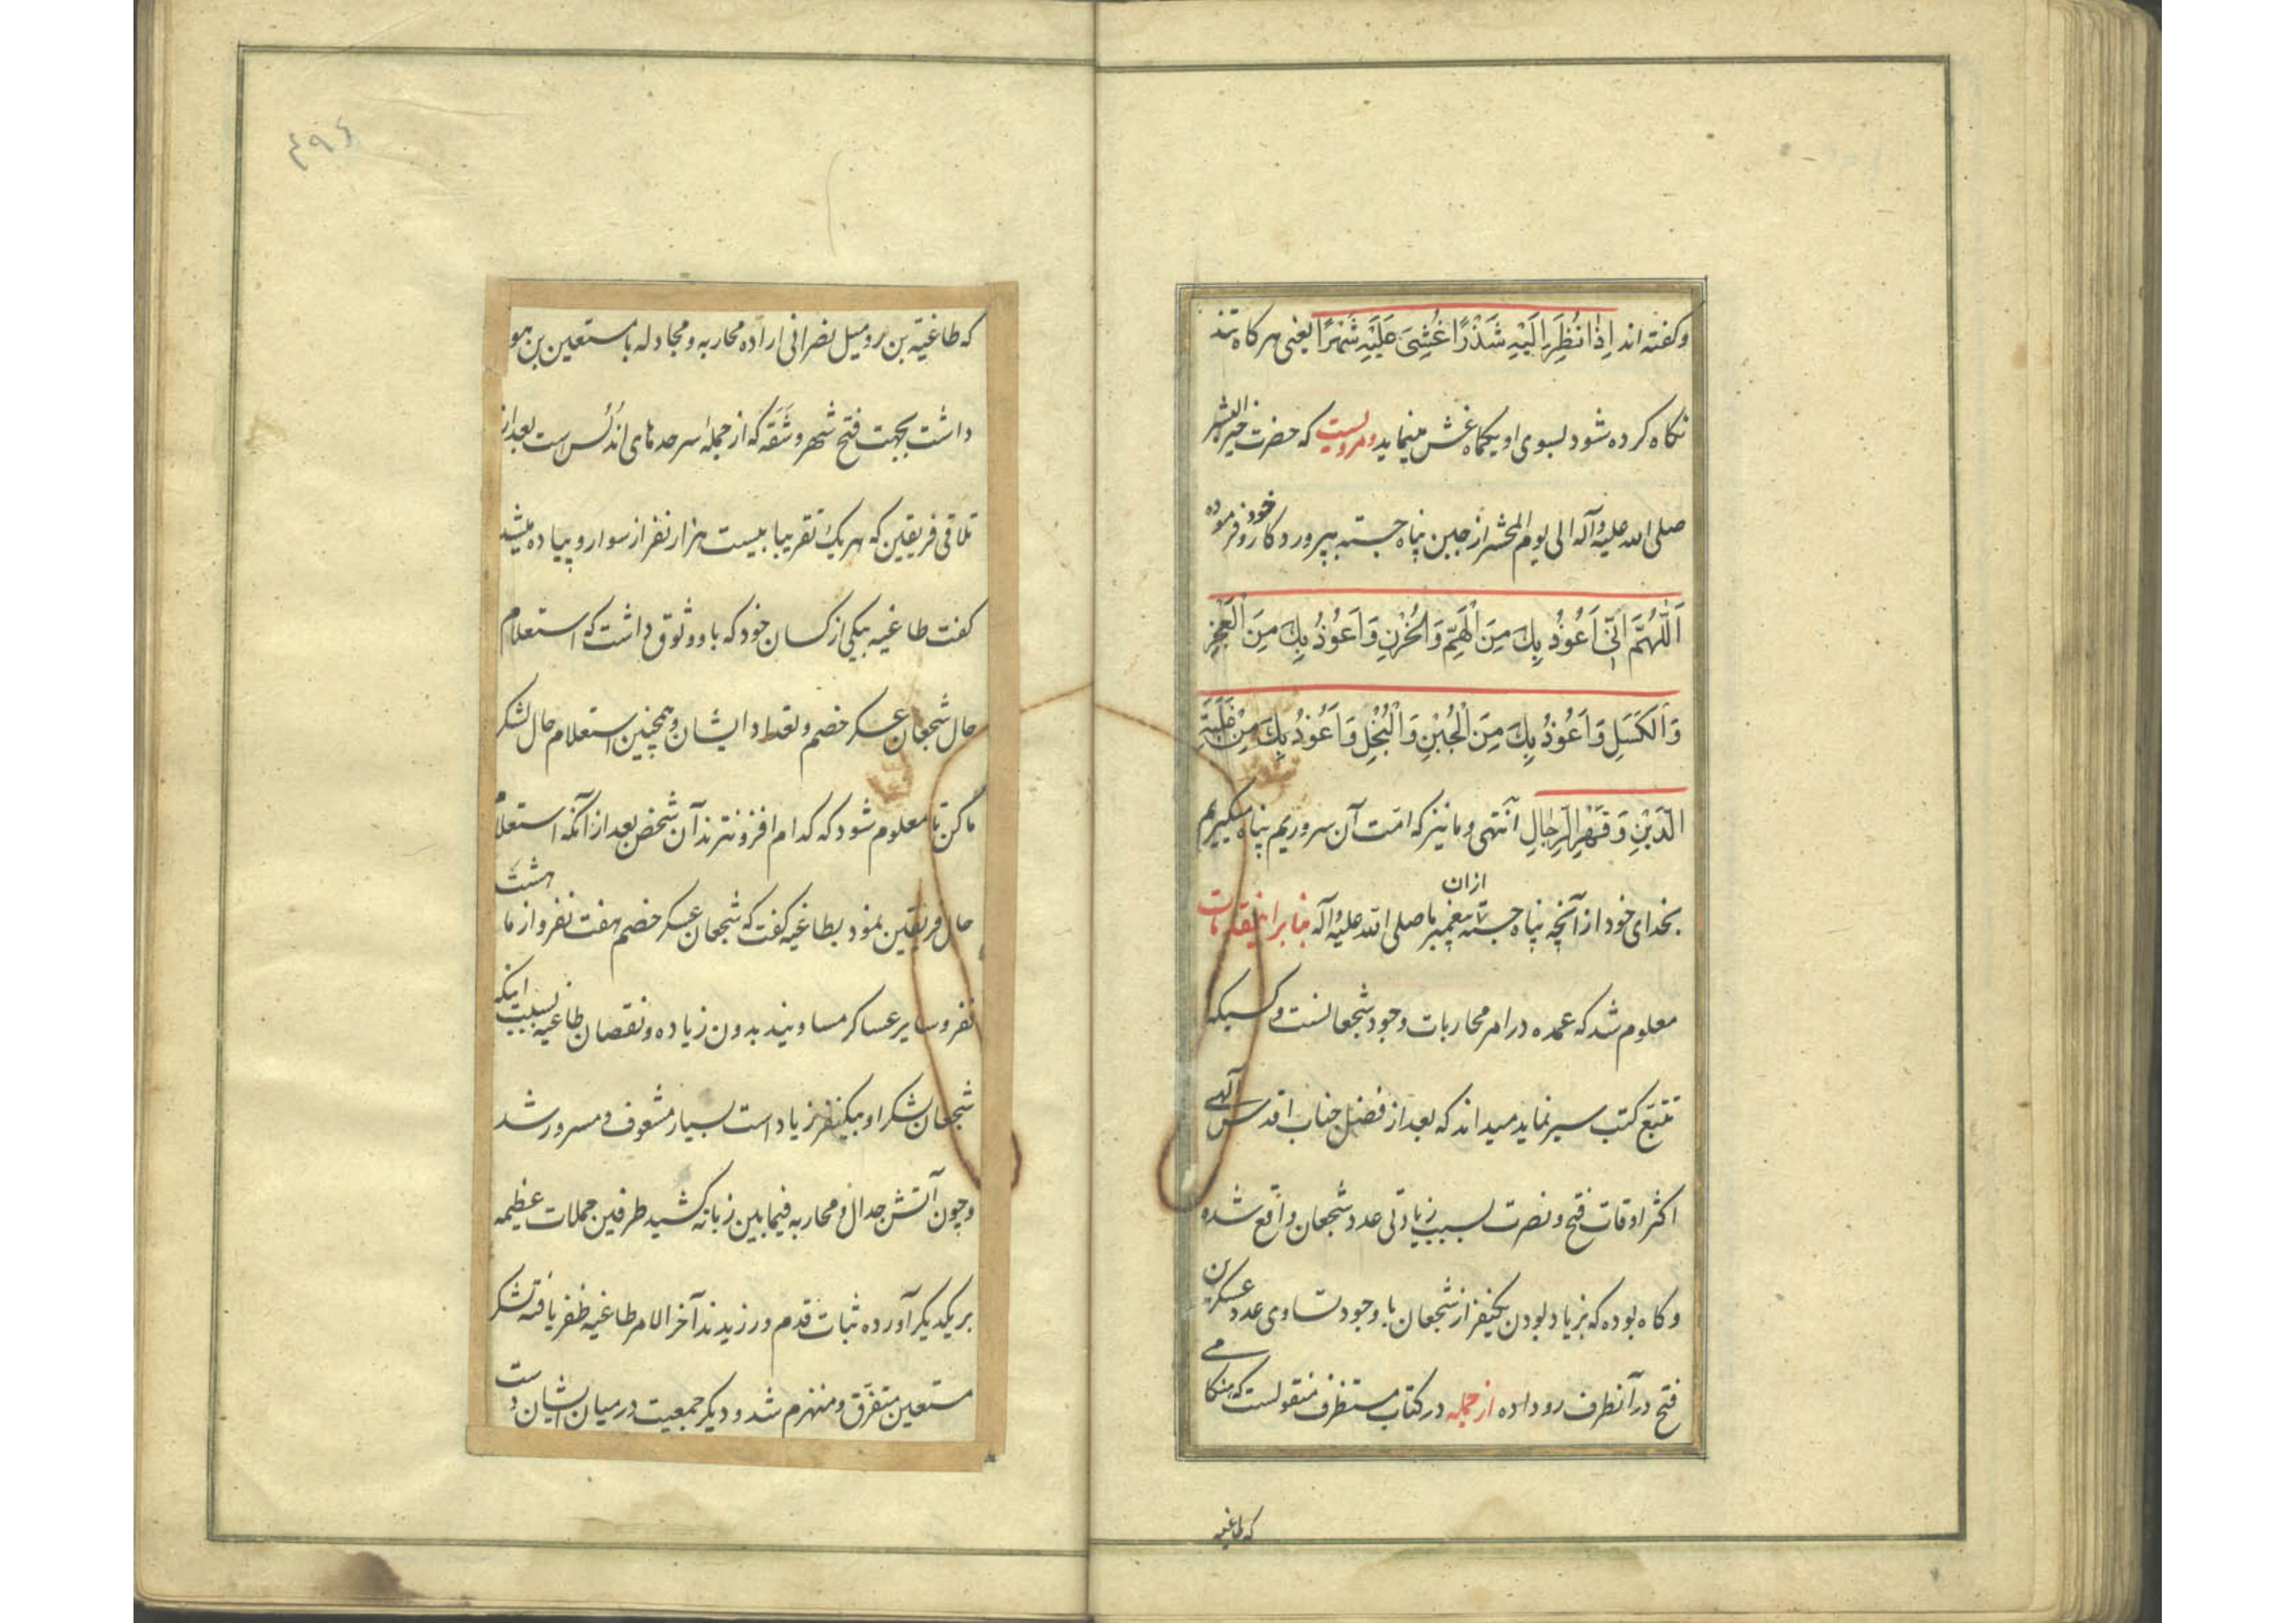 وکفته اند اِذٰا نُظِرَ اِلَیْهِ شَذْرًا غُشِیَ عَلَیْهِ شَهْرًا یعنی هر کاه تند
نکاه کرده شود بسوی او یکماه غش مینماید و مرویست که حضرت خیر البشر
صلی الله علیه و آله الی یوم المحشر از جبن پناه جسته بپروردکار خود و فرموده
اَللّٰهُمَّ اِنّیٖ اَعُوُذُ بِكَ مِنَ الْهَمِّ وَالْحُزْنِ وَ اَعوُذُ بِكَ مِنَ الْعَجْزِ
وَالْكَسَلِ وَ اَعوُذُ بِكَ مِنَ الْجُبْنِ وَالْبُخْلِ وَ اَعُوذُ بِكَ مِنْ غَلَبَةِ
الدَّیْنِ وَ قَهْرِ الرِّجٰالِ انتهی و ما نیز که امّت آن سروریم پناه میکیریم
بخدای خود از آنچه پناه جسته از ان پیغمبر ما صلی الله علیه و آله بنا بر این مقدمات
معلوم شد که عمده در امر محاربات وجود شجعانست و کسیکه
تتبّع کتب سیر نماید میداند که بعد از فضل جناب اقدس الهی
اکثر اوقات فتح و نصرت بسبب زیادتی عدد شجعان واقع شده
و کاه بوده که بزیاد بودن یکنفر از شجعان با وجود تساوی عدد عسکرین
فتح در آنطرف رو داده از جمله در کتاب مستظرف منقولست که هنکامی
که طاغیه
۴۹۶
که طاغیة بن رومیل نصرانی اراده محاربه و مجادله با مستعین بن هو
داشت بجهت فتح شهر وشَقَه که از جملهٔ سرحدهای اندُلُس است بعد از
تلاقی فریقین که هر یك تقریبا بیست هزار نفر از سوار و پیاده میشد
کفت طاغیه بیکی از کسان خود که باو وثوق داشت که استعلام
حال شجعان عسکر خصم و تعداد ایشان و همچنین استعلام حال لشکر
ما کن تا معلوم شود که کدام افزونترند آن شخص بعد از آنکه استعلام
حال فریقین نمود بطاغیه کفت که شجعان عسکر خصم هفت نفر و از ما هشت
نفر و سایر عساکر مساویند بدون زیاده و نقصان طاغیه بسبب اینکه
شجعان لشکر او بیکنفر زیاد است بسیار مشعوف و مسرور شد
و چون آتش جدال و محاربه فیمابین زبانه کشید طرفین حملات عظیمه
بر یکدیکر آورده ثبات قدم ورزیدند آخر الامر طاغیه ظفر یافته لشکر
مستعین متفرّق و منهزم شد و دیکر جمعیت در میان ایشان دست